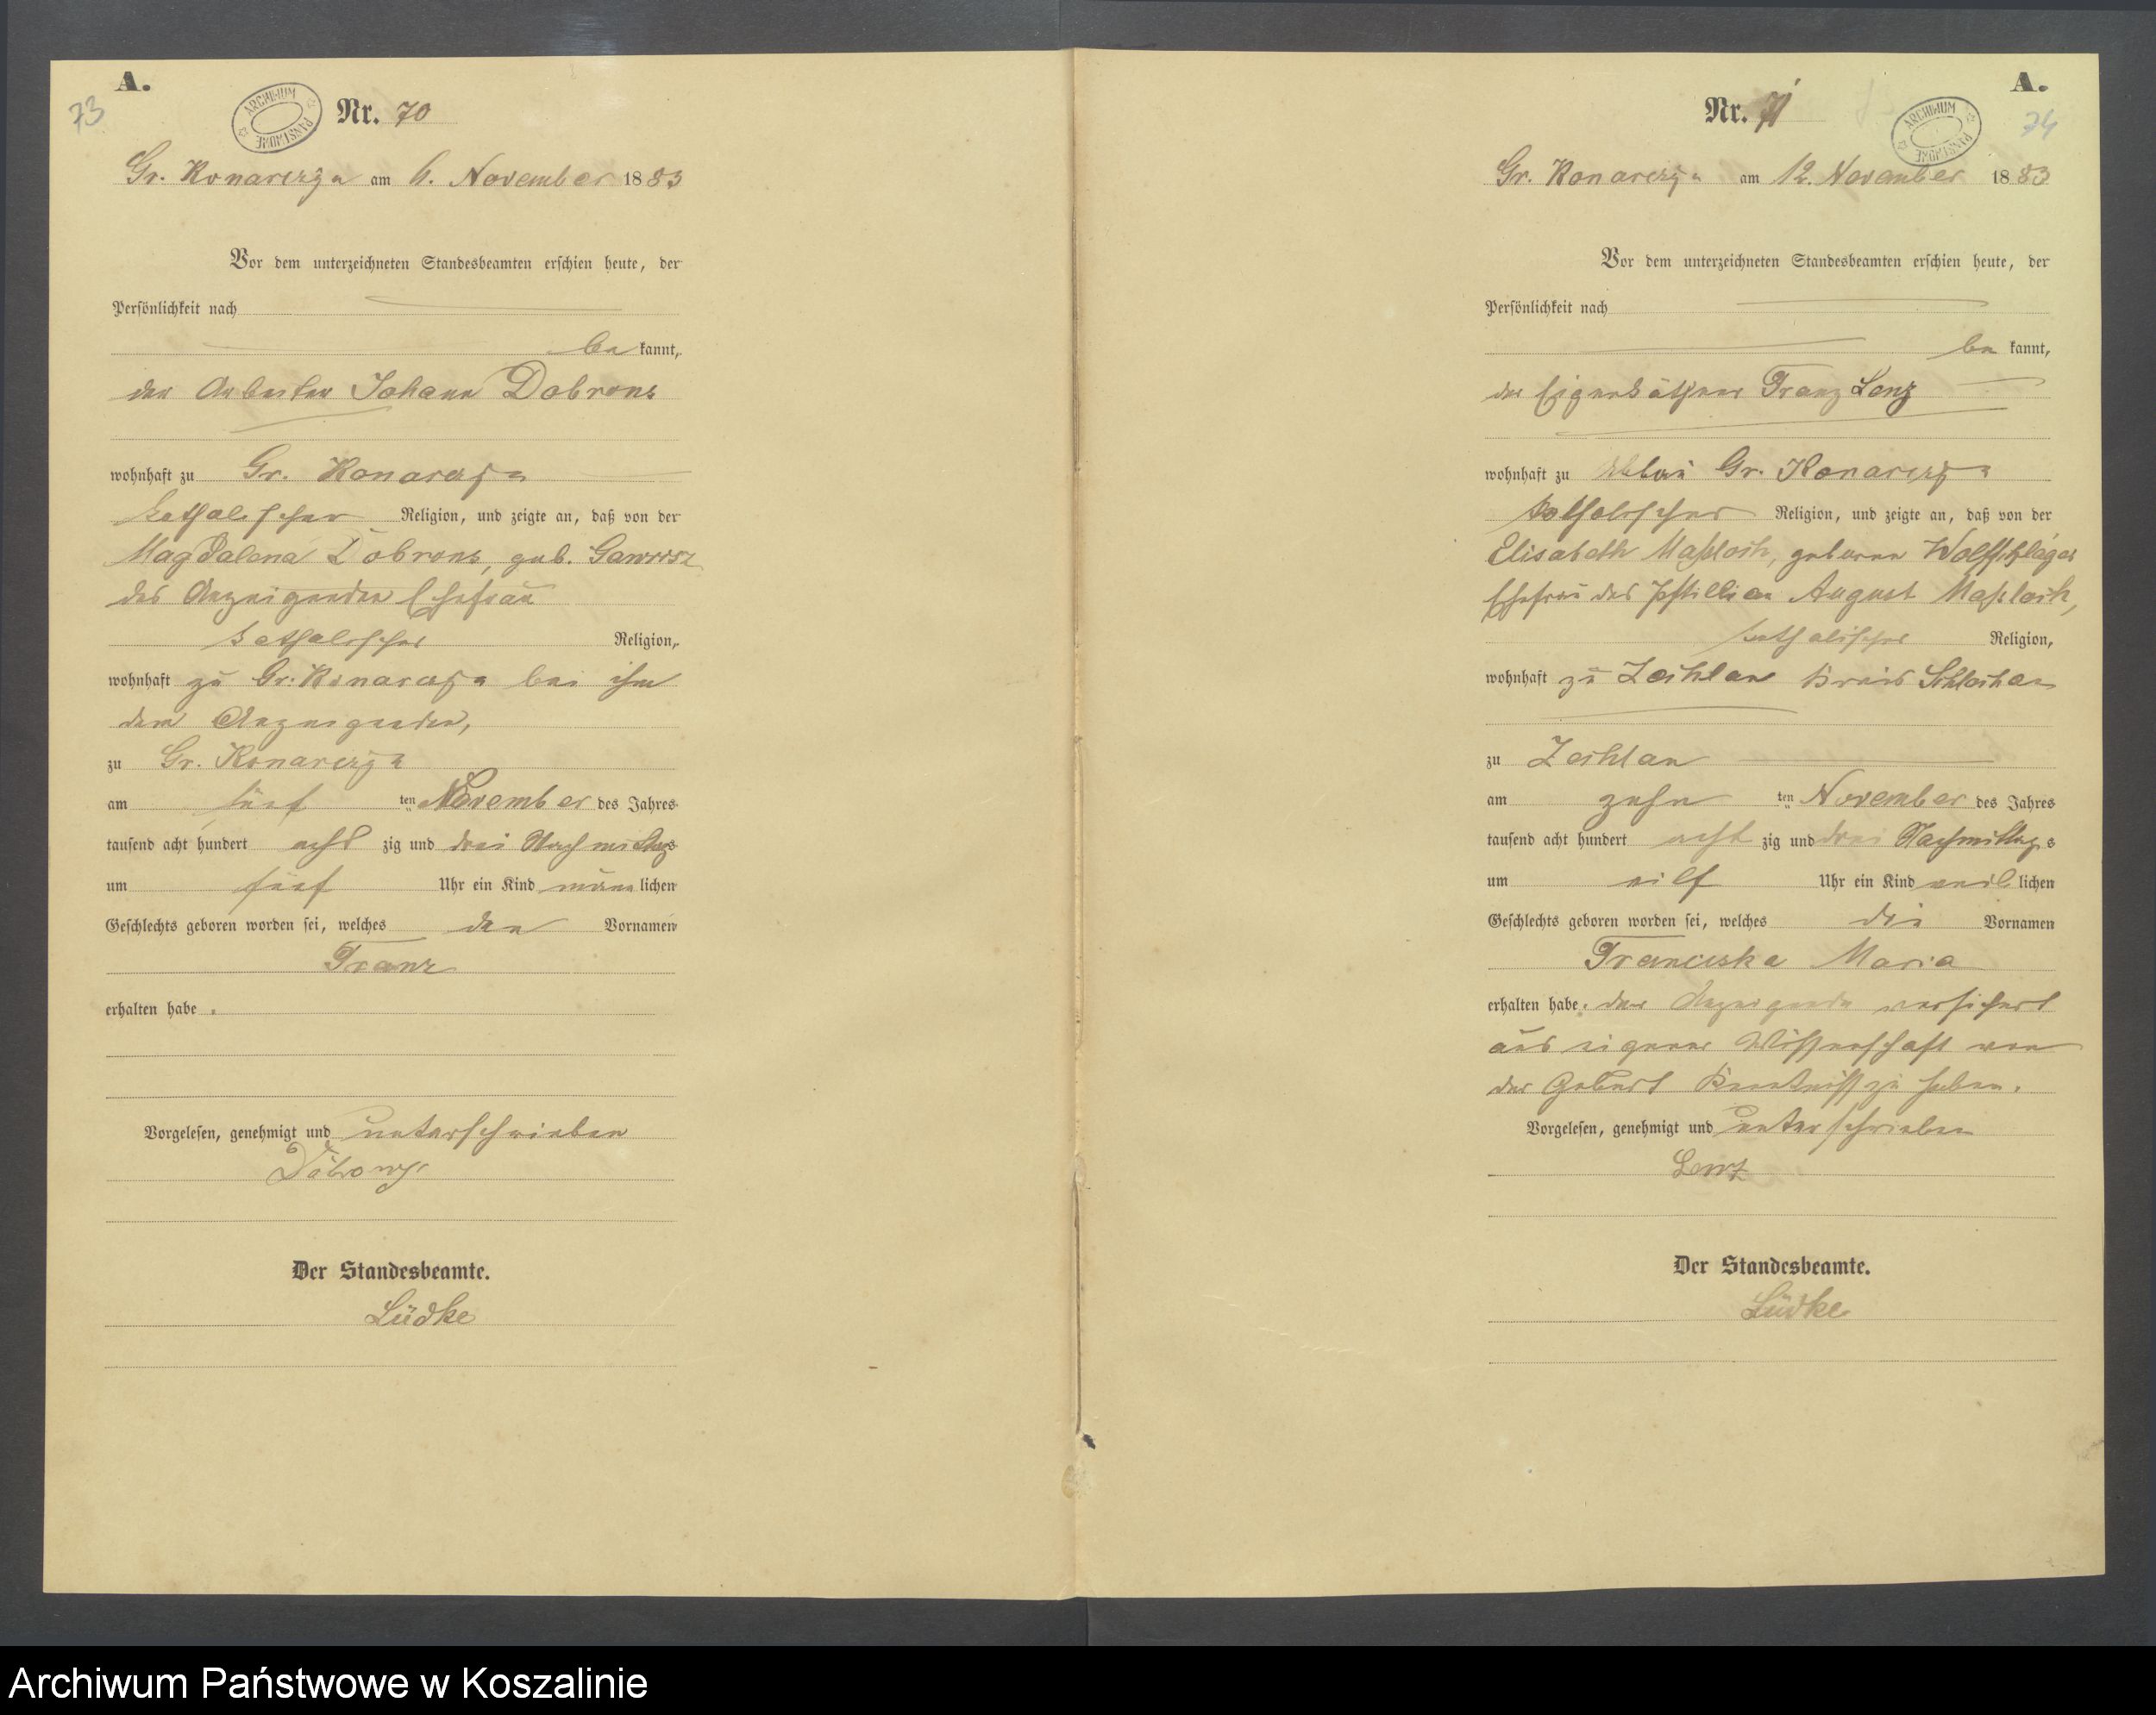 A.
73
ARCHIWUM PAŃSTWOWE
Nr. 70
Gr. Konarczyn am 6. November 1883
Vor dem unterzeichneten Standesbeamten erschien heute, der
Persönlichkeit nach
be kannt,
der Arbeiter Johann Dobrons
wohnhaft zu Gr. Konarczyn
katholischer Religion, und zeigte an, daß von der
Magdalena Dobrons, geb.
des Anzeigenden Ehefrau
katholischer Religion,
wohnhaft zu Gr. Konarczyn bei ihm
dem Anzeigenden,
zu Gr. Konarczyn
am fünf ten November des Jahres
tausend acht hundert acht zig und drei Nachmittags
um fünf Uhr ein Kind männ lichen
Geschlechts geboren worden sei, welches den Vornamen
Franz
erhalten habe.
Vorgelesen, genehmigt und unterschrieben
Der Standesbeamte.
Lüdke
A.
74
ARCHIWUM PAŃSTWOWE
Nr. 71
Gr. Konarczyn am 12. November 1883
Vor dem unterzeichneten Standesbeamten erschien heute, der
Persönlichkeit nach
be kannt,
der Eigenkäthner Franz Lenz
wohnhaft zu Abbau Gr. Konarczyn
katholischer Religion, und zeigte an, daß von der
Elisabeth geborne Wollschläger
Ehefrau des Postillion August
katholischer Religion,
wohnhaft zu Zechlau Kreis Schlochau
zu Zechlau
am zehn ten November des Jahres
tausend acht hundert acht zig und drei Nachmittags
um eilf Uhr ein Kind weib lichen
Geschlechts geboren worden sei, welches die Vornamen
Franciska Maria
erhalten habe. der Anzeigende versichert
aus eigener Wissenschaft von
der Geburt Kenntniß zu haben.
Vorgelesen, genehmigt und unterschrieben
Lenz
Der Standesbeamte.
Lüdke
Archiwum Państwowe w Koszalinie